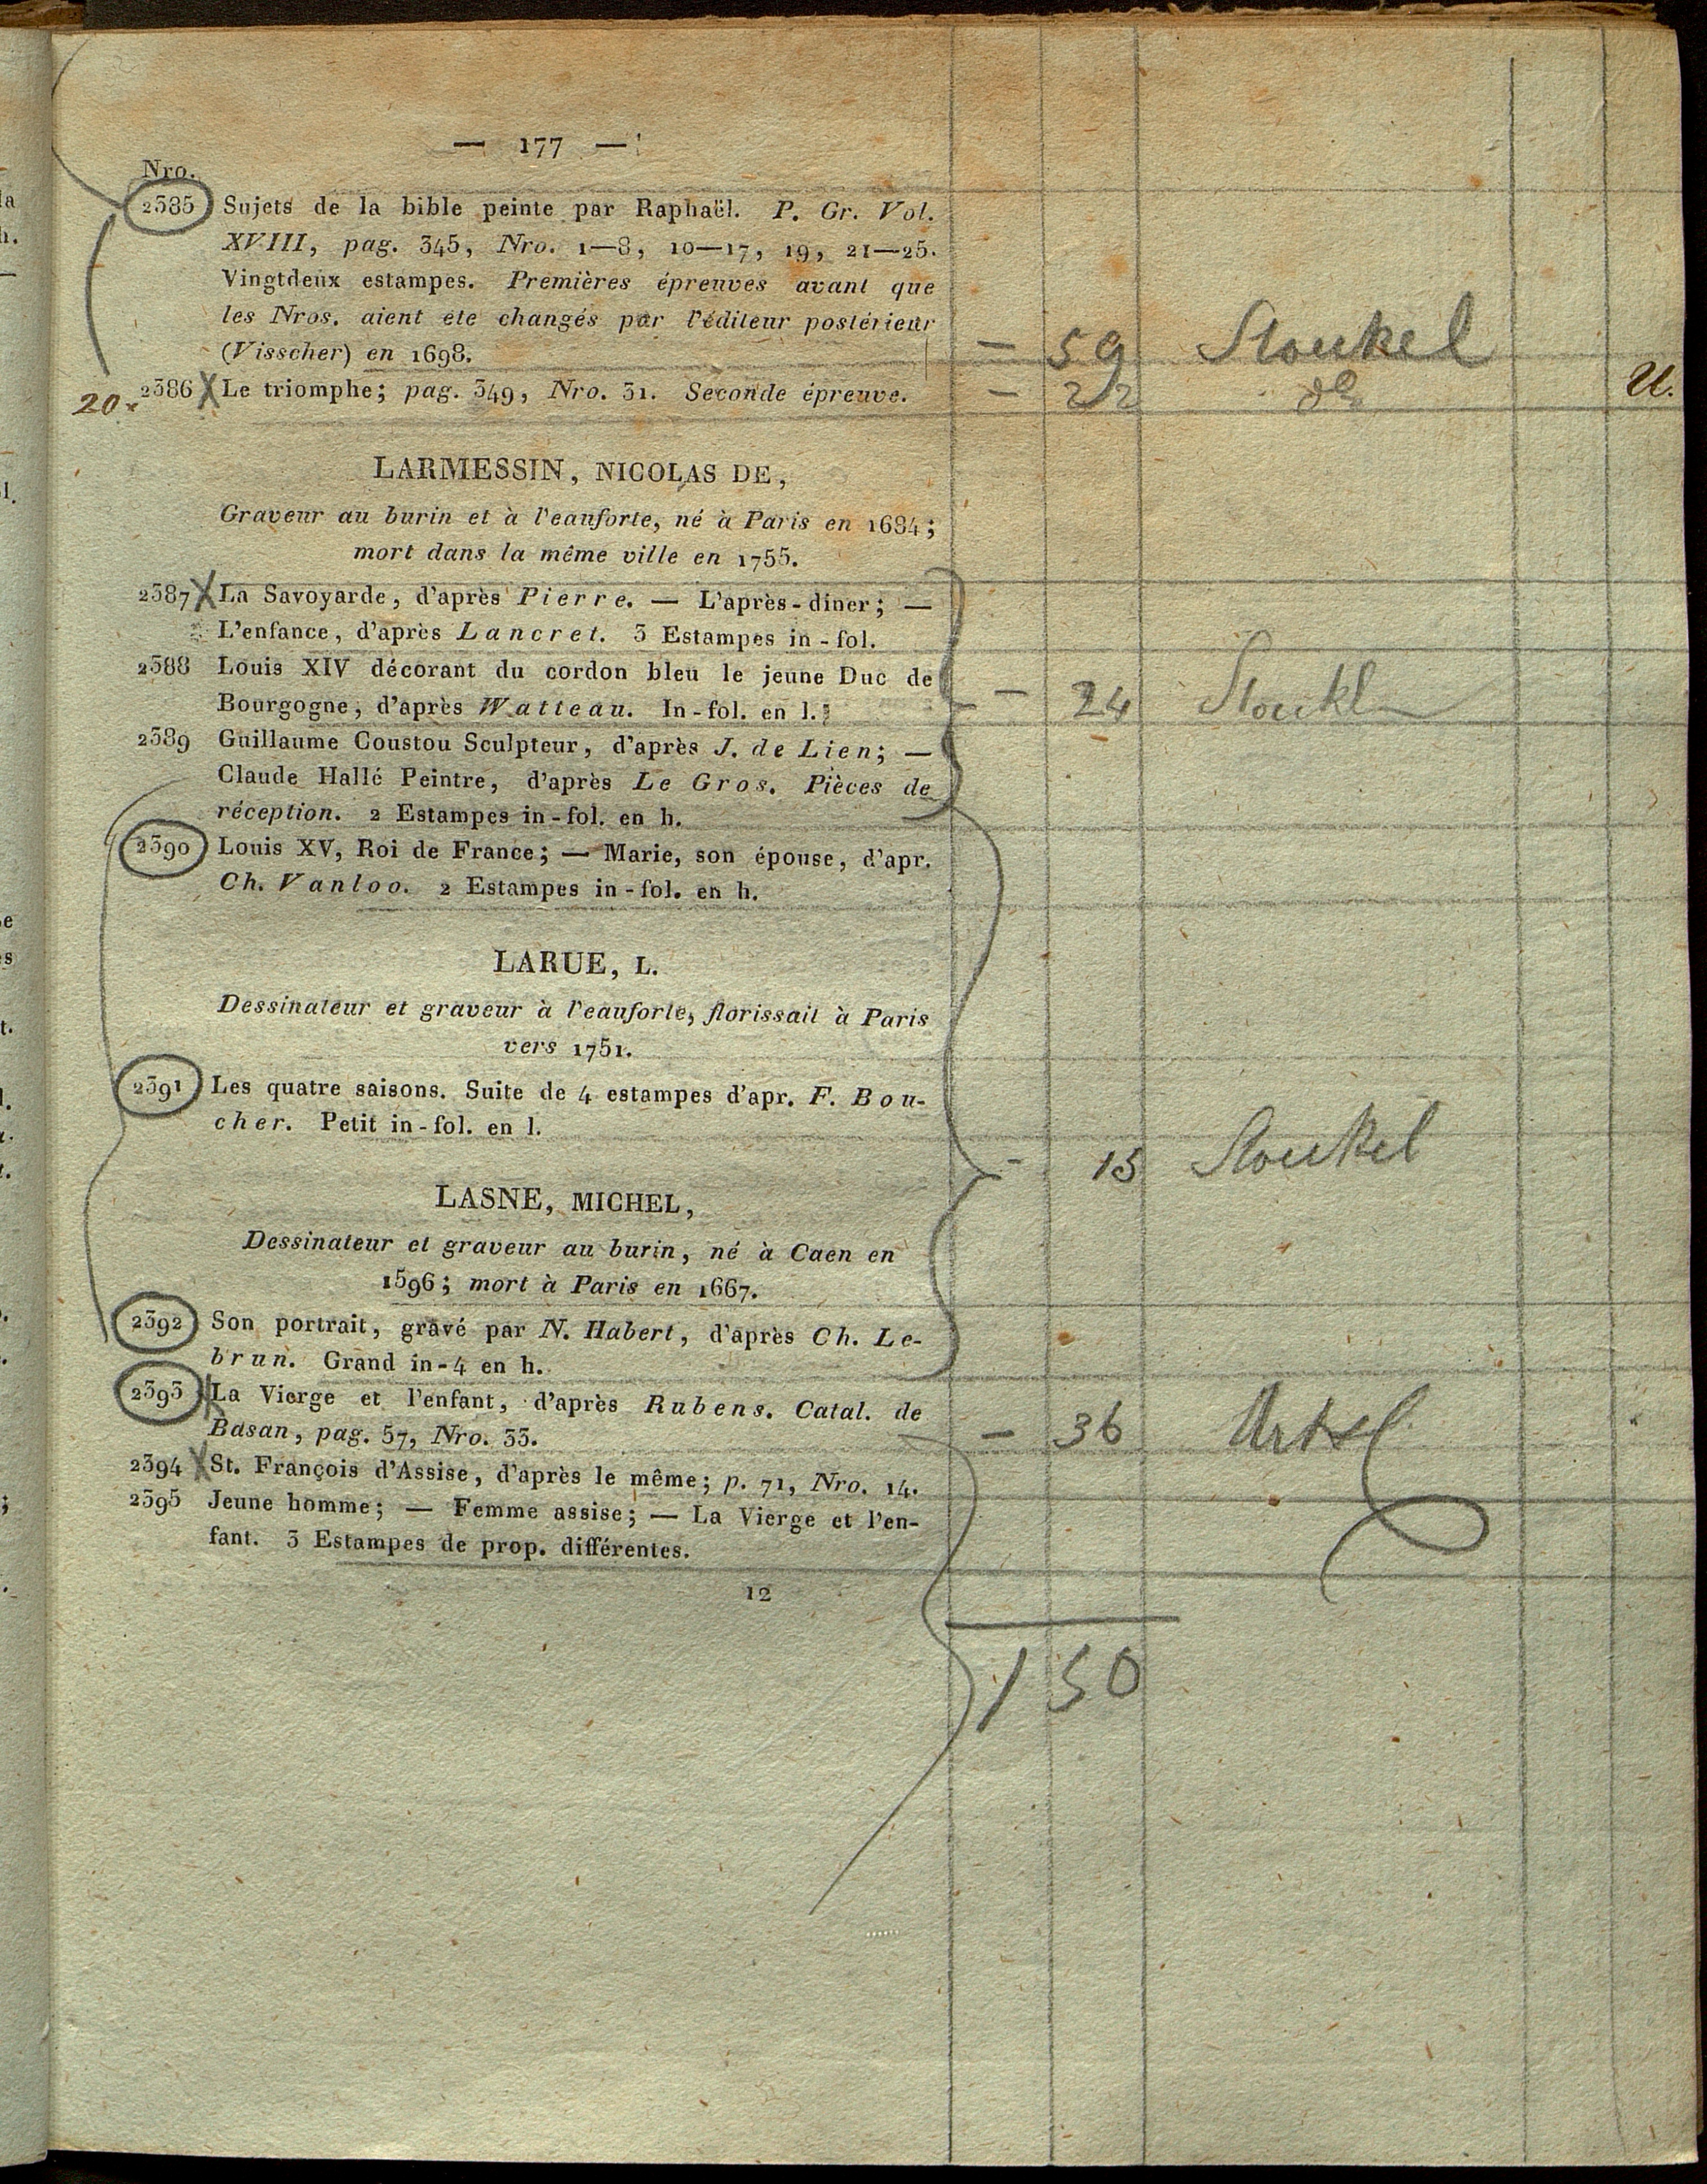 — 177 —
Nro.
2385 Sujets de la bible peinte par Raphaël. P. Gr. Vol.
XVIII, pag. 345, Nro. 1—8, 10—17, 19, 21—25.
Vingtdeux estampes. Premières épreuves avant que
les Nros. aient été changés par l'éditeur postérieur
(Visscher) en 1698. — 59 Stoukel
20. 2386 X Le triomphe; pag. 349, Nro. 31. Seconde épreuve. — 22 U.
LARMESSIN, NICOLAS DE,
Graveur au burin et à l'eauforte, né à Paris en 1684;
mort dans la même ville en 1755.
2387 X La Savoyarde, d'après Pierre. — L'après-diner; —
L'enfance, d'après Lancret. 3 Estampes in-fol.
2388 Louis XIV décorant du cordon bleu le jeune Duc de
Bourgogne, d'après Watteau. In-fol. en l. — 24 Stoukl
2389 Guillaume Coustou Sculpteur, d'après J. de Lien; —
Claude Hallé Peintre, d'après Le Gros. Pièces de
réception. 2 Estampes in-fol. en h.
2390 Louis XV, Roi de France; — Marie, son épouse, d'apr.
Ch. Vanloo. 2 Estampes in-fol. en h.
LARUE, L.
Dessinateur et graveur à l'eauforte, florissait à Paris
vers 1751.
2391 Les quatre saisons. Suite de 4 estampes d'apr. F. Bou-
cher. Petit in-fol. en l.
— 15 Stoukel
LASNE, MICHEL,
Dessinateur et graveur au burin, né à Caen en
1596; mort à Paris en 1667.
2392 Son portrait, gravé par N. Habert, d'après Ch. Le-
brun. Grand in-4 en h.
2393 X La Vierge et l'enfant, d'après Rubens. Catal. de
Basan, pag. 57, Nro. 33. — 36
2394 X St. François d'Assise, d'après le même; p. 71, Nro. 14.
2395 Jeune homme; — Femme assise; — La Vierge et l'en-
fant. 3 Estampes de prop. différentes.
12
150